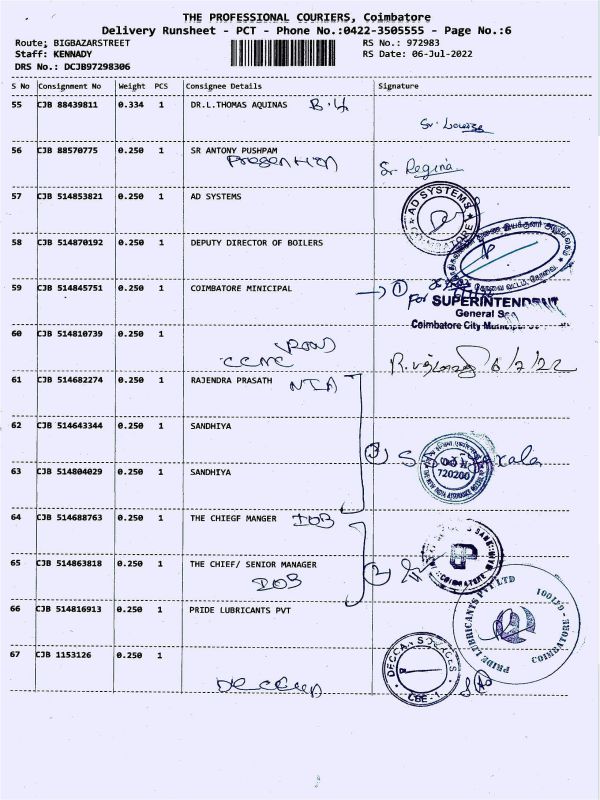 THE PROFESSIONAL COURIERS, Coimbatore
Delivery Runsheet - PCT - Phone No.:0422-3505555 - Page No.:6
Route: BIGBAZARSTREET RS No.: 972983
Staff: KENNADY RS Date: 06-Jul-2022
DRS No.: DCJB97298306
S No Consignment No Weight PCS Consignee Details Signature
55 CJB 88439811 0.334 1 DR.L.THOMAS AQUINAS B.H
56 CJB 88570775 0.250 1 SR ANTONY PUSHPAM Sr Regina
Presention
57 CJB 514853821 0.250 1 AD SYSTEMS AD SYSTEMS COIMBATORE
58 CJB 514870192 0.250 1 DEPUTY DIRECTOR OF BOILERS
59 CJB 514845751 0.250 1 COIMBATORE MINICIPAL 1
for SUPERINTENDENT
General
Coimbatore City
60 CJB 514810739 0.250 1
CCMC 6/7/22
61 CJB 514682274 0.250 1 RAJENDRA PRASATH NIA
62 CJB 514643344 0.250 1 SANDHIYA
63 CJB 514804029 0.250 1 SANDHIYA 3 720200
64 CJB 514688763 0.250 1 THE CHIEGF MANGER IOB
65 CJB 514863818 0.250 1 THE CHIEF/ SENIOR MANAGER 2 COIMBATORE
IOB
66 CJB 514816913 0.250 1 PRIDE LUBRICANTS PVT PRIDE LUBRICANTS PVT LTD COIMBATORE - 641001
67 CJB 1153126 0.250 1 DECCAN CBE - 1
Deccan